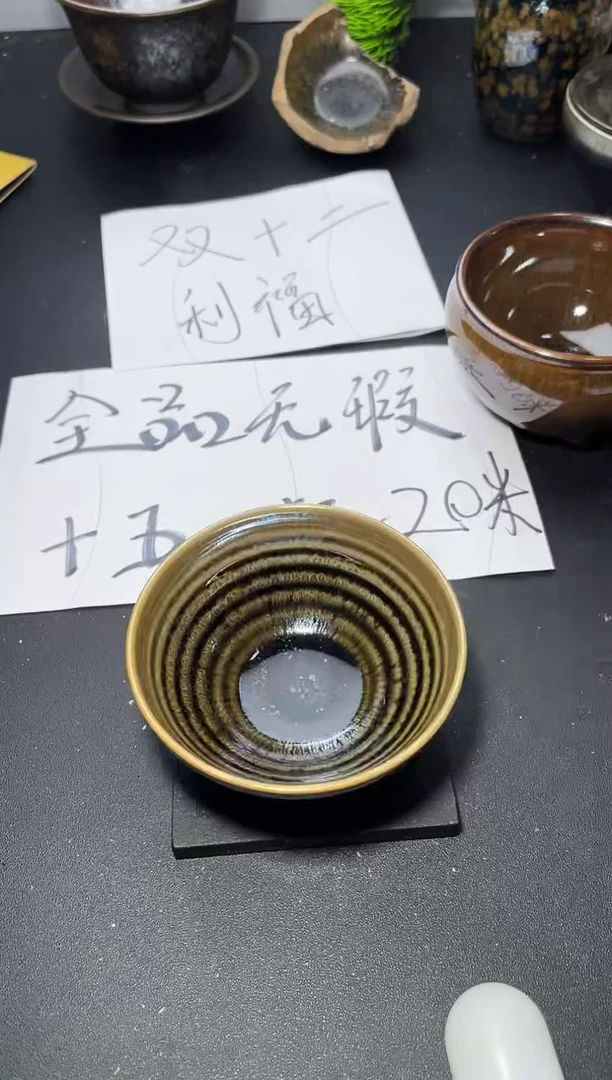 双十二
利福
全品无瑕
十五 20米